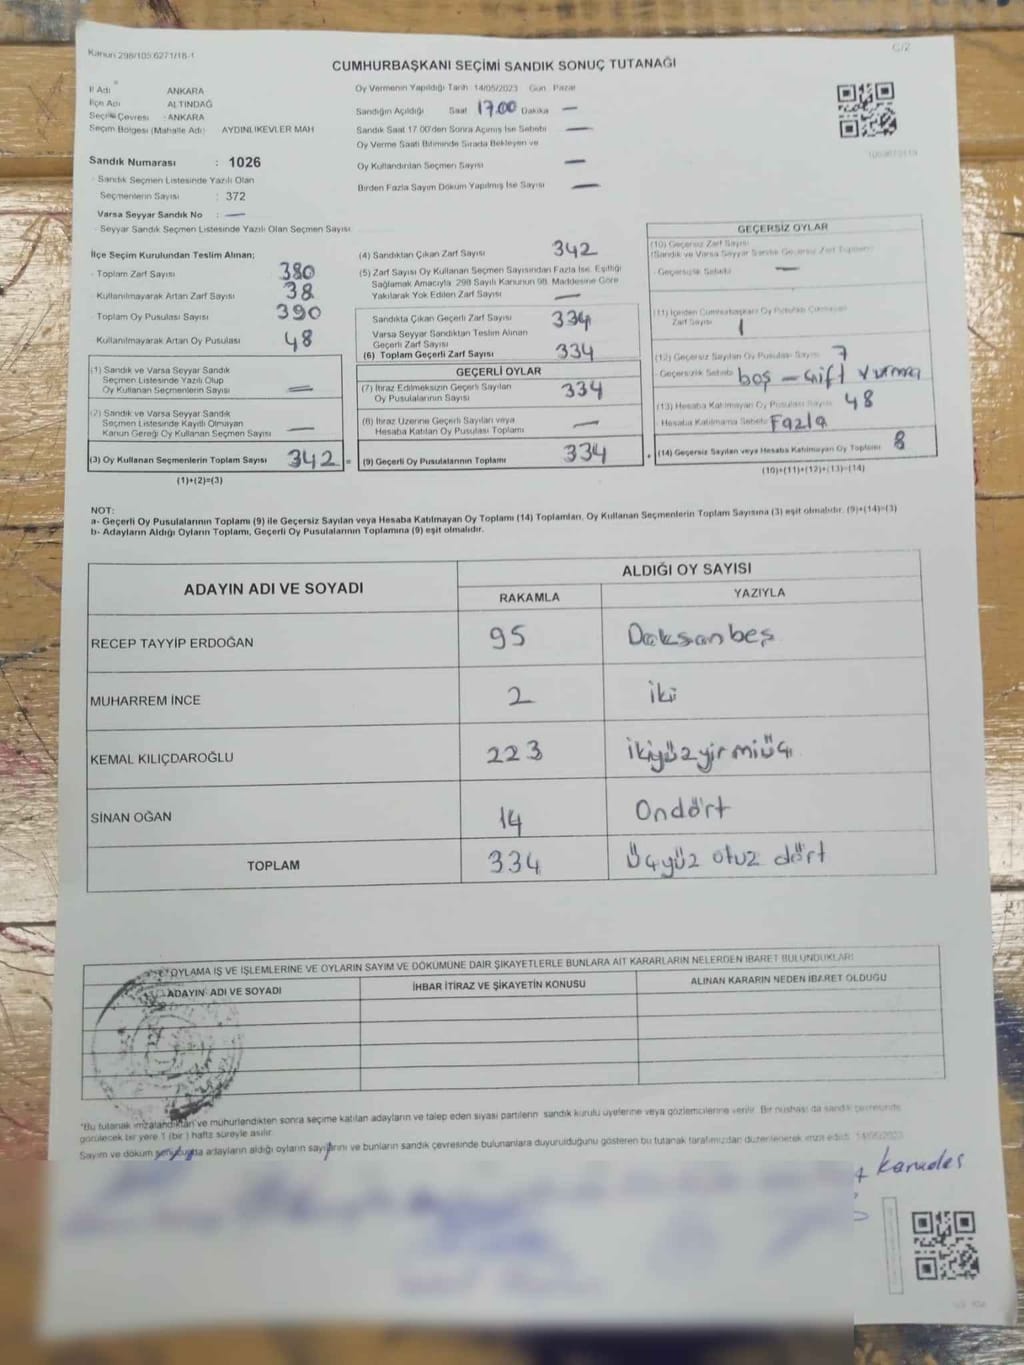 Kanun 298/105;6271/18-1
C/2
CUMHURBAŞKANI SEÇİMİ SANDIK SONUÇ TUTANAĞI
İl Adı ANKARA
İlçe Adı ALTINDAĞ
Seçim Çevresi : ANKARA
Seçim Bölgesi (Mahalle Adı) AYDINLIKEVLER MAH
Sandık Numarası : 1026
Sandık Seçmen Listesinde Yazılı Olan
Seçmenlerin Sayısı : 372
Varsa Seyyar Sandık No : —
Seyyar Sandık Seçmen Listesinde Yazılı Olan Seçmen Sayısı
Oy Vermenin Yapıldığı Tarih 14/05/2023 Gün Pazar
Sandığın Açıldığı Saat 17.00 Dakika —
Sandık Saat 17.00'den Sonra Açılmış İse Sebebi —
Oy Verme Saati Bitiminde Sırada Bekleyen ve
Oy Kullandırılan Seçmen Sayısı —
Birden Fazla Sayım Döküm Yapılmış İse Sayısı —
İlçe Seçim Kurulundan Teslim Alınan;
- Toplam Zarf Sayısı 380
- Kullanılmayarak Artan Zarf Sayısı 38
- Toplam Oy Pusulası Sayısı 390
Kullanılmayarak Artan Oy Pusulası 48
(1) Sandık ve Varsa Seyyar Sandık
Seçmen Listesinde Yazılı Olup
Oy Kullanan Seçmenlerin Sayısı —
(2) Sandık ve Varsa Seyyar Sandık
Seçmen Listesinde Kayıtlı Olmayan
Kanun Gereği Oy Kullanan Seçmen Sayısı —
(3) Oy Kullanan Seçmenlerin Toplam Sayısı 342 =
(1)+(2)=(3)
(4) Sandıktan Çıkan Zarf Sayısı 342
(5) Zarf Sayısı Oy Kullanan Seçmen Sayısından Fazla İse, Eşitliği
Sağlamak Amacıyla, 298 Sayılı Kanunun 98. Maddesine Göre
Yakılarak Yok Edilen Zarf Sayısı —
Sandıkta Çıkan Geçerli Zarf Sayısı 334
Varsa Seyyar Sandıktan Teslim Alınan
Geçerli Zarf Sayısı
(6) Toplam Geçerli Zarf Sayısı 334
GEÇERLİ OYLAR
(7) İtiraz Edilmeksizin Geçerli Sayılan
Oy Pusulalarının Sayısı 334
(8) İtiraz Üzerine Geçerli Sayılan veya
Hesaba Katılan Oy Pusulası Toplamı —
(9) Geçerli Oy Pusulalarının Toplamı 334 +
GEÇERSİZ OYLAR
(10) Geçersiz Zarf Sayısı
(Sandık ve Varsa Seyyar Sandık Geçersiz Zarf Toplamı)
- Geçersizlik Sebebi —
(11) İçinden Cumhurbaşkanı Oy Pusulası Çıkmayan
Zarf Sayısı 1
(12) Geçersiz Sayılan Oy Pusulası Sayısı 7
- Geçersizlik Sebebi boş – Çift Vurma
(13) Hesaba Katılmayan Oy Pusulası Sayısı 48
- Hesaba Katılmama Sebebi Fazla
(14) Geçersiz Sayılan veya Hesaba Katılmayan Oy Toplamı 8
(10)+(11)+(12)+(13)=(14)
NOT:
a- Geçerli Oy Pusulalarının Toplamı (9) ile Geçersiz Sayılan veya Hesaba Katılmayan Oy Toplamı (14) Toplamları, Oy Kullanan Seçmenlerin Toplam Sayısına (3) eşit olmalıdır. (9)+(14)=(3)
b- Adayların Aldığı Oyların Toplamı, Geçerli Oy Pusulalarının Toplamına (9) eşit olmalıdır.
ADAYIN ADI VE SOYADI
ALDIĞI OY SAYISI
RAKAMLA YAZIYLA
RECEP TAYYİP ERDOĞAN 95 Doksanbeş
MUHARREM İNCE 2 iki
KEMAL KILIÇDAROĞLU 223 ikiyüzyirmiüç
SİNAN OĞAN 14 Ondört
TOPLAM 334 Üçyüz otuz dört
OYLAMA İŞ VE İŞLEMLERİNE VE OYLARIN SAYIM VE DÖKÜMÜNE DAİR ŞİKAYETLERLE BUNLARA AİT KARARLARIN NELERDEN İBARET BULUNDUKLARI
ADAYIN ADI VE SOYADI İHBAR İTİRAZ VE ŞİKAYETİN KONUSU ALINAN KARARIN NEDEN İBARET OLDUĞU
*Bu tutanak imzalandıktan ve mühürlendikten sonra seçime katılan adayların ve talep eden siyasi partilerin sandık kurulu üyelerine veya gözlemcilerine verilir. Bir nüshası da sandık çevresinde
görülecek bir yere 1 (bir) hafta süreyle asılır.
Sayım ve döküm sonucunda adayların aldığı oyların sayılarını ve bunların sandık çevresinde bulunanlara duyurulduğunu gösteren bu tutanak tarafımızdan düzenlenerek imza edildi. 14/05/2023